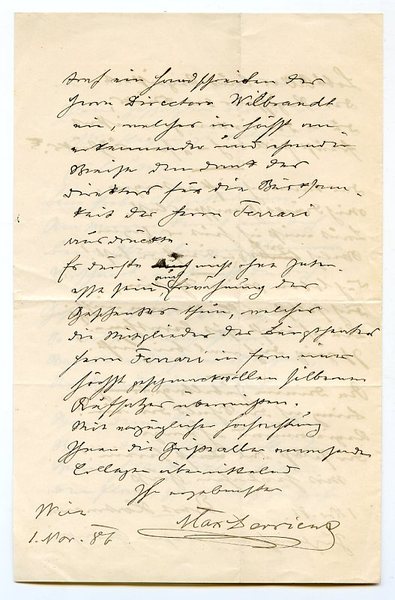 traf ein Handschreiben des
Herrn Directors Wilbrandt
ein, welches in höchst an-
erkennender und ehrender
Weise den Dank des
Direktors für die Wirksam-
keit des Herrn Ferrari
ausdrückte.
Es dürfte nicht ohne Inter-
esse sein auch Erwähnung des
Geschenkes thun, welches
die Mitglieder des Burgtheaters
Herrn Ferrari in Form eines
höchst geschmackvollen silbernen
Aufsatzes überreichten.
Mit vorzüglicher Hochachtung
Ihnen die
Collegen übermittelnd
Ihr ergebenster
Wien
1. Nov. 86
Max